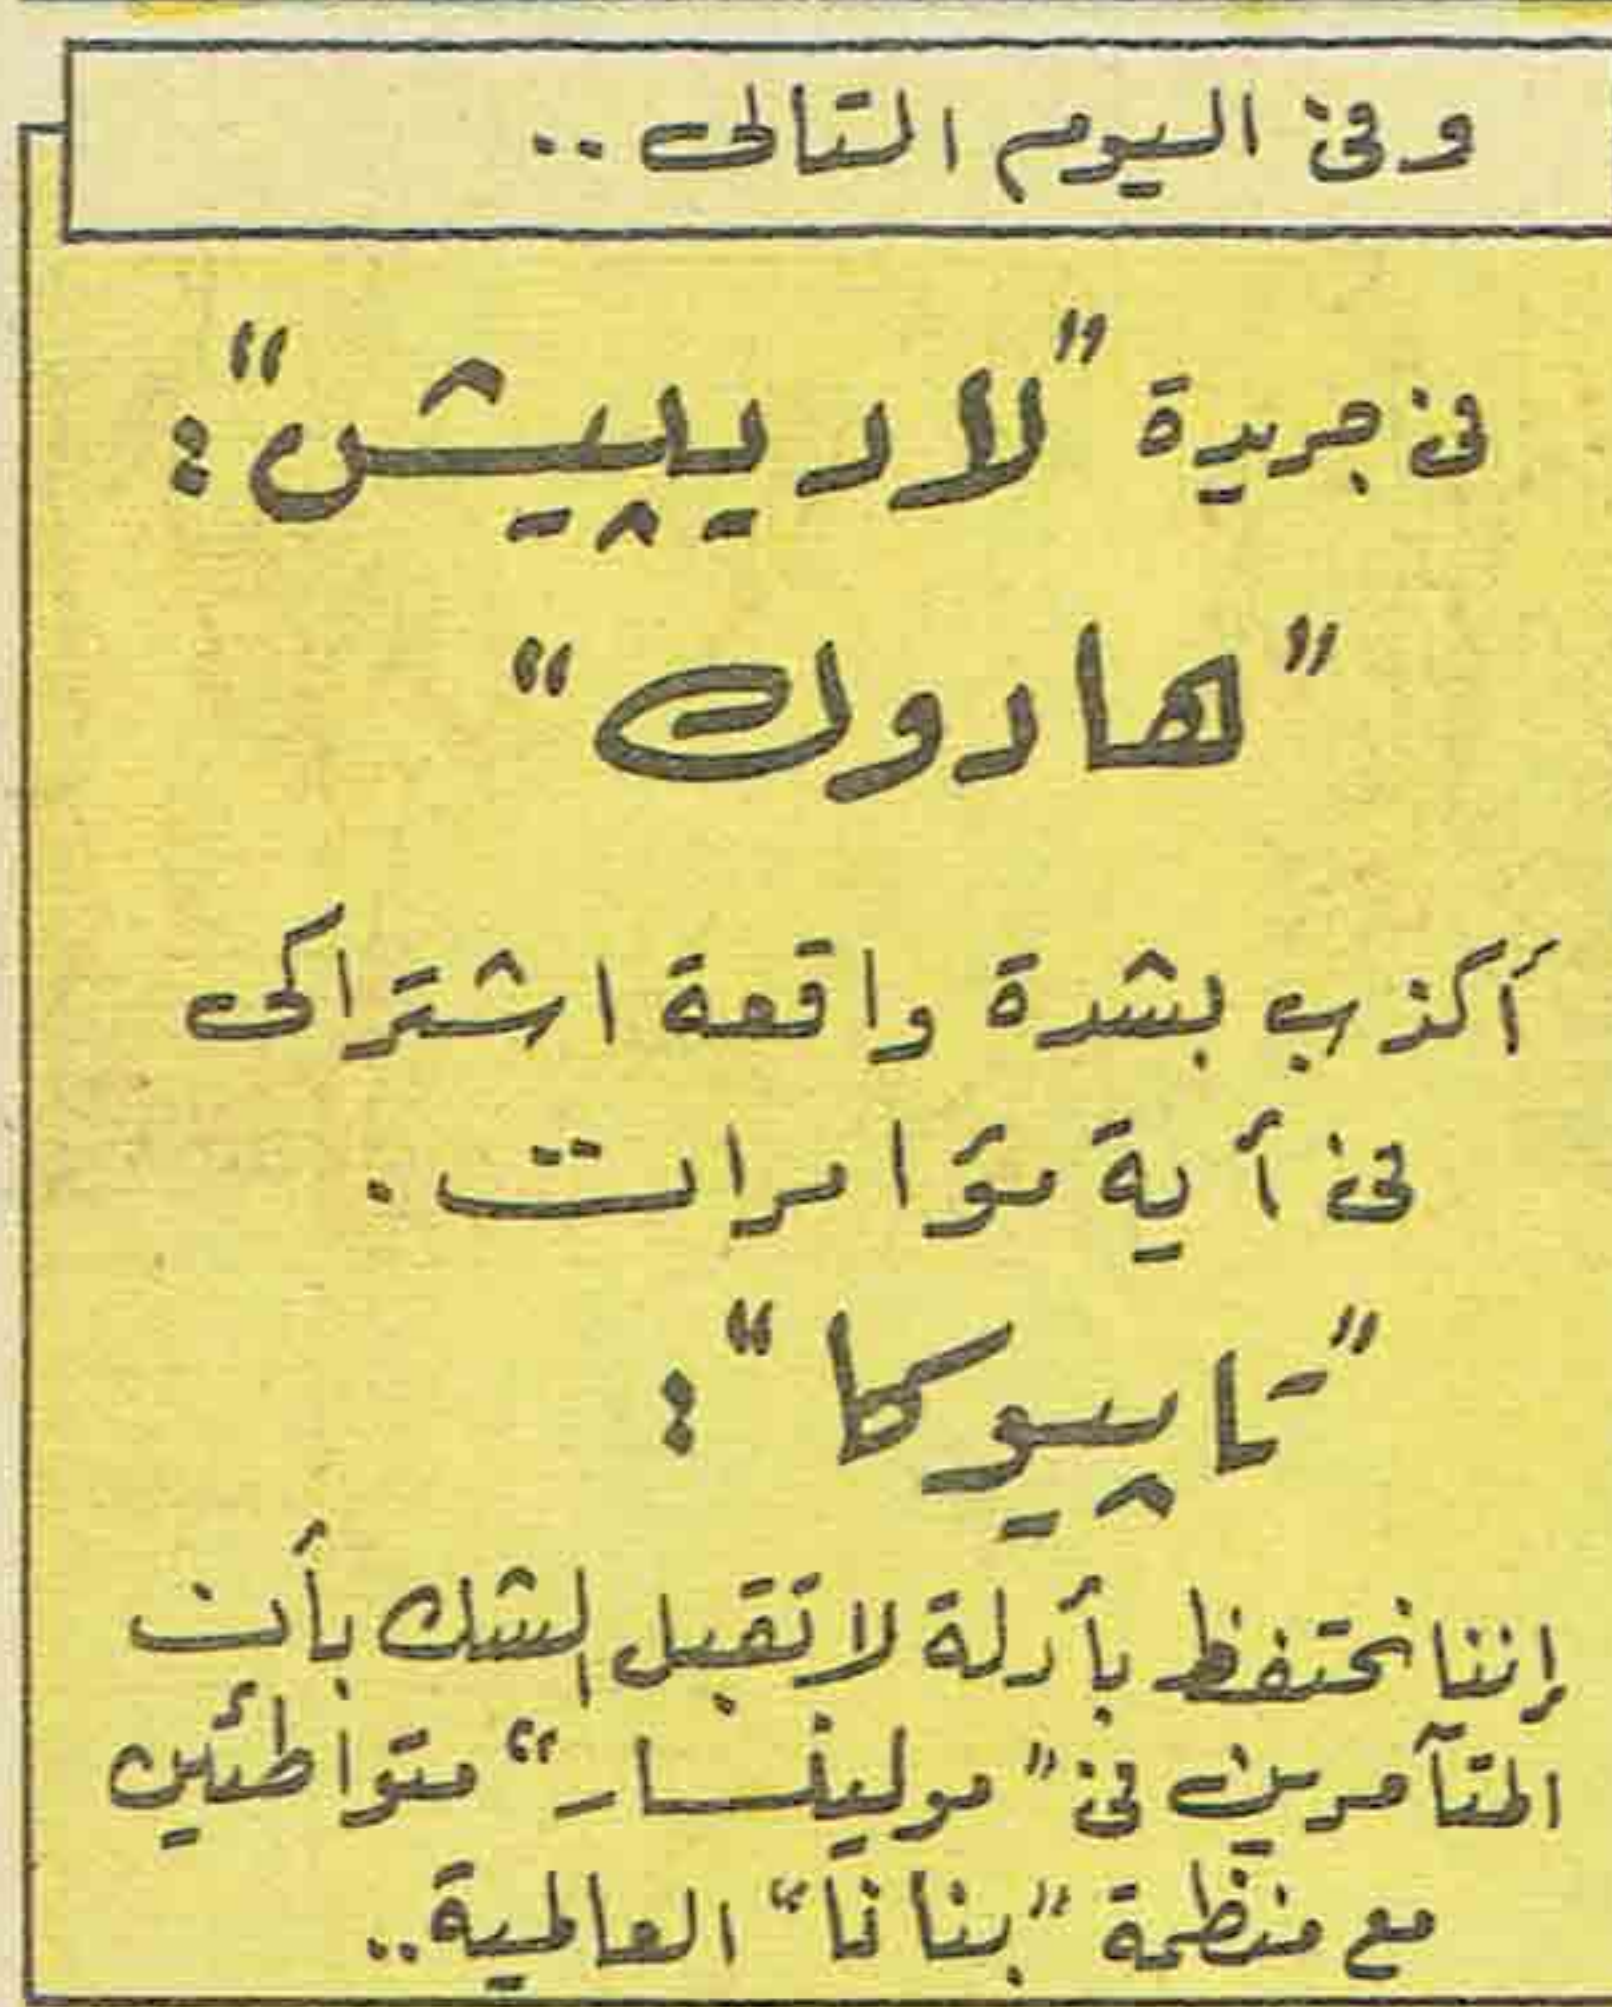 وفى اليوم التالى ..
فى جريدة "لاديپيش":
"هادوك"
أكذب بشدة واقعة اشتراكى
فى أية مؤامرات .
"تاپيوكا":
إننا نحتفظ بأدلة لا تقبل الشك بأن
المتآمرين فى "مولينسار" متواطئين
مع منظمة "بنانا" العالمية..